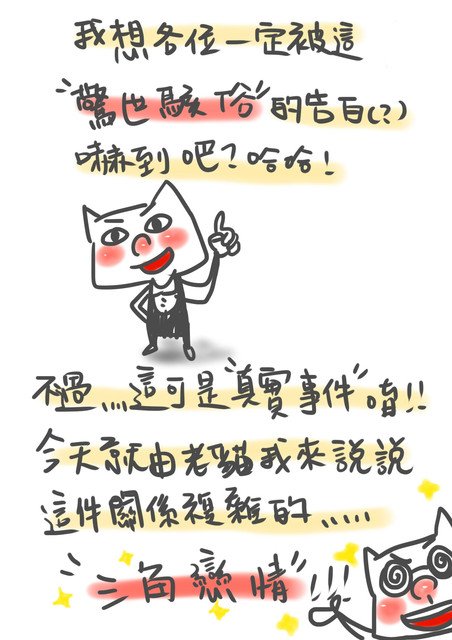 我想各位一定被這
"驚世駭俗"的告白(?)
嚇到吧?哈哈!
不過...這可是"真實事件"唷!!
今天就由老貓我來說說
這件關係複雜的.....
"三角戀情"!!!